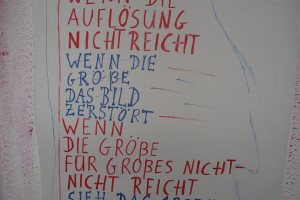 WENN DIE
AUFLÖSUNG
NICHT REICHT
WENN DIE
GRÖßE
DAS BILD
ZERSTÖRT
WENN
DIE GRÖßE
FÜR GROßES NICHT-
NICHT REICHT
SIEH DAS